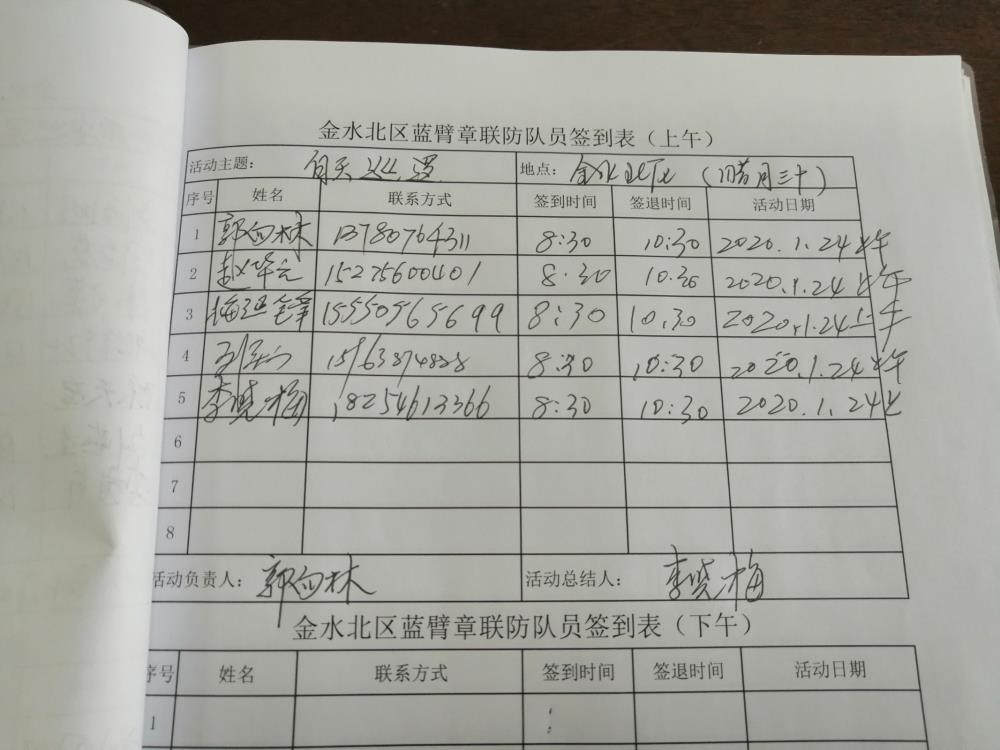 金水北区蓝臂章联防队员签到表（上午）
活动主题： 白天巡逻 地点： 金水北区（腊月三十）
序号 姓名 联系方式 签到时间 签退时间 活动日期
1 郭向林 13780764311 8:30 10:30 2020.1.24上午
2 赵华元 15275600401 8:30 10:30 2020.1.24上午
3 15550565699 8:30 10:30 2020.1.24上午
4 8:30 10:30 2020.1.24上午
5 李晓梅 18254613366 8:30 10:30 2020.1.24上
6
7
8
活动负责人： 郭向林 活动总结人： 李晓梅
金水北区蓝臂章联防队员签到表（下午）
序号 姓名 联系方式 签到时间 签退时间 活动日期
1 :